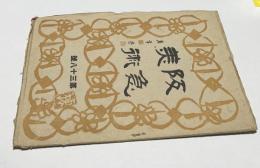 阪急
美術
第三十八號